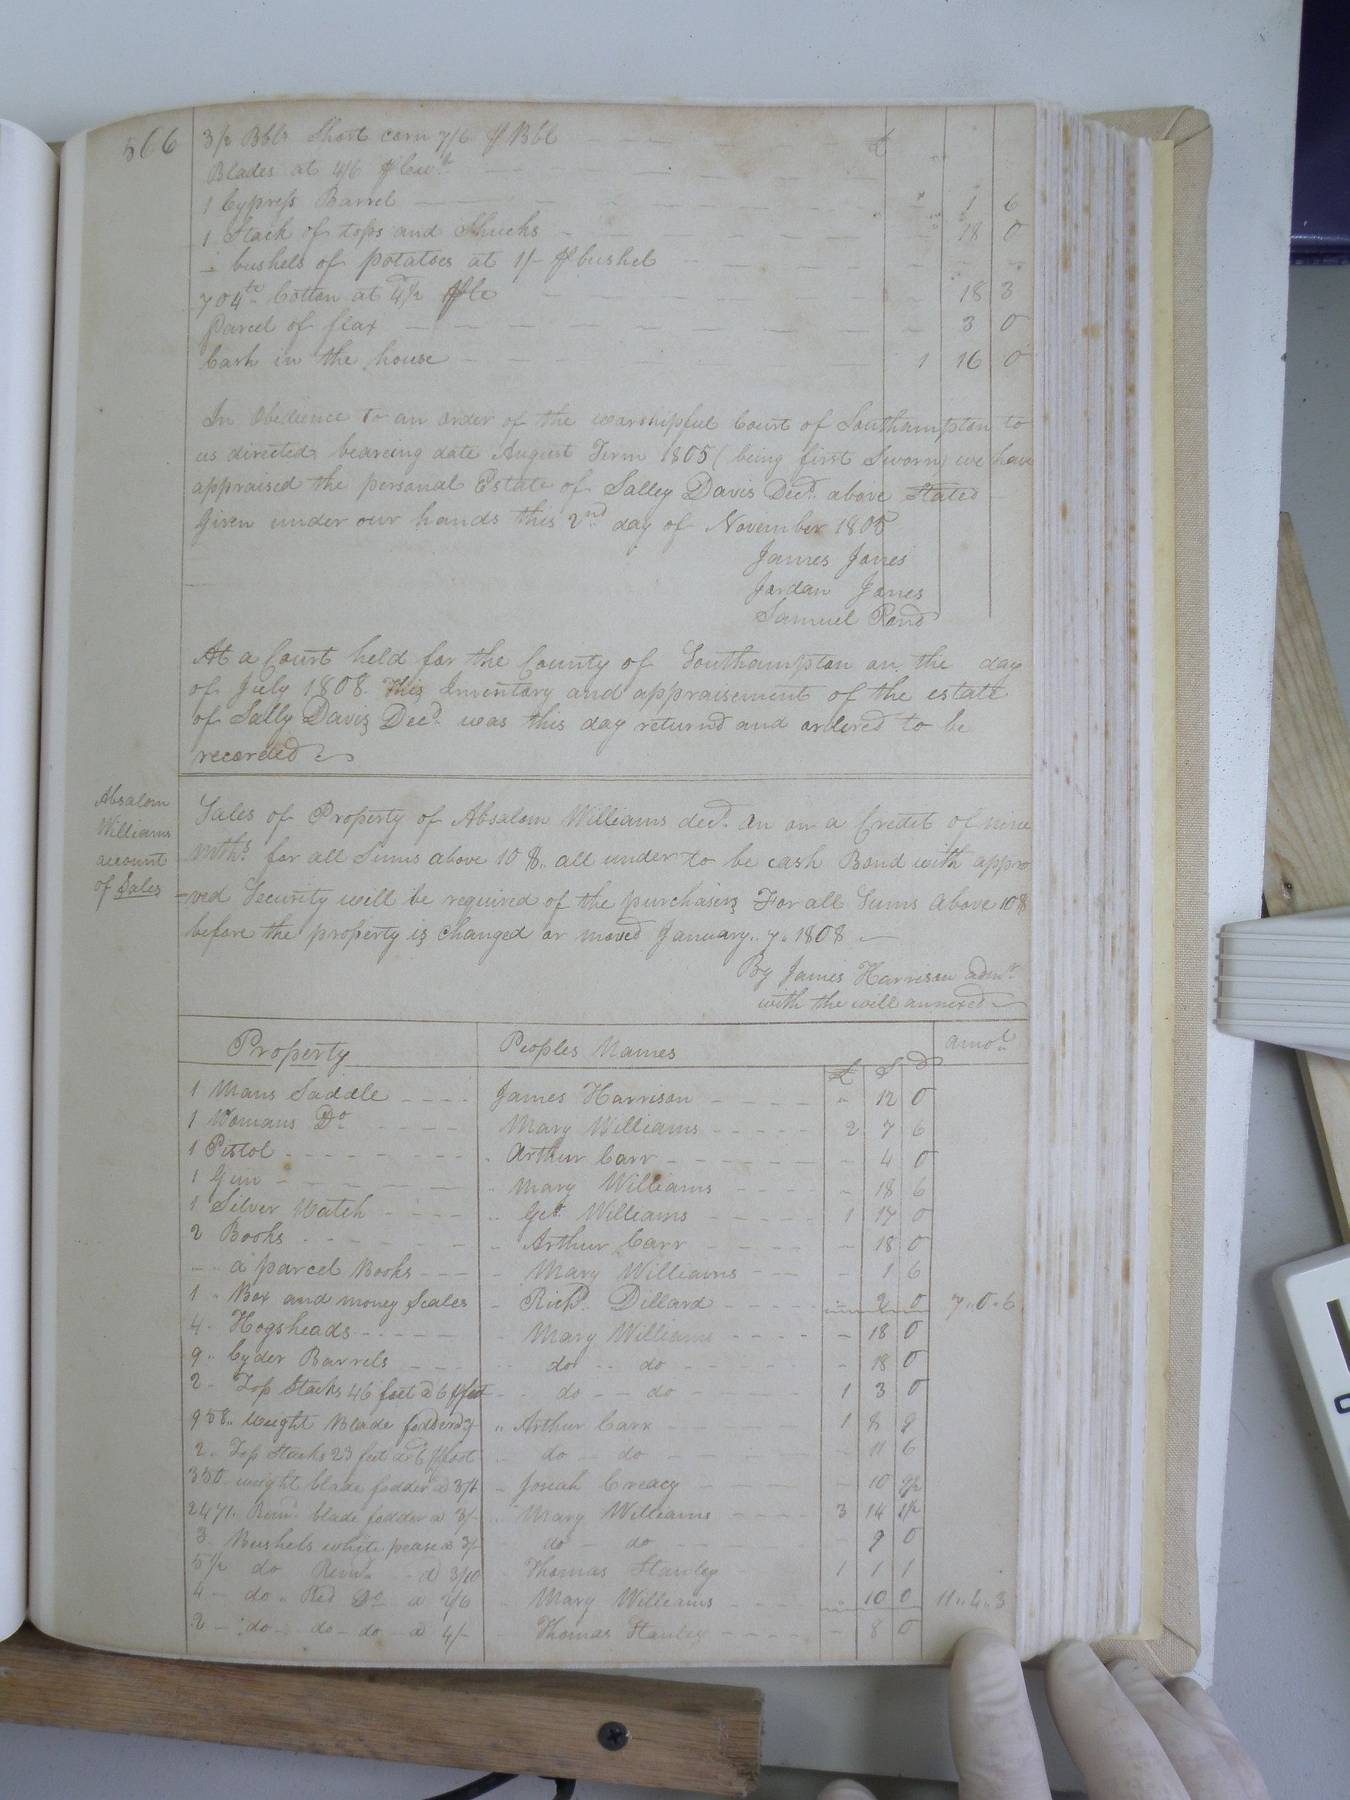 566
3 1/2 Bbls Short corn 7/6 ⅌ Bbl £
Blades at 4/6 ⅌ Cwt
1 Cypress Barrel " 1 6
1 Stack of tops and Shucks " 18 0
bushels of potatoes at 1/- ⅌ bushel
704 lb Cotton at ⅌ lb 18 3
Parcel of flax 3 0
Cash in the house 1 16 0
In Obedience to an order of the worshipful Court of Southampton to
us directed bearing date August Term 1805 (being first Sworn) we have
appraised the personal Estate of Salley Davis Decd. above Stated
Given under our hands this 2nd day of November 1805
James Jones
Jordan Jones
Samuel Pond
At a Court held for the County of Southampton on the day
of July 1808. This Inventory and appraisement of the estate
of Sally Davis Decd. was this day returnd and ordered to be
recorded
Absalom
Williams
account
of Sales
Sales of Property of Absalom Williams decd. On on a Credit of nine
mths for all Sums above 10 $.. all under to be cash Bond with appro
=ved Security will be required of the purchasers For all Sums above 10$
before the property is changed or moved January.. 7. 1808
By James Harrison admr.
with the will annexed
Property Peoples Names amot.
£ S D
1 Mans Saddle James Harrison " 12 0
1 Womans Do Mary Williams 2 7 6
1 Pistol Arthur Carr 4 0
1 Gun Mary Williams 18 6
1 Silver Watch Get Williams 1 17 0
2 Books Arthur Carr 18 0
a parcel Books Mary Williams 1 6
1 Box and money Scales Richd. Dillard 2 0 7..0.6
4 Hogsheads Mary Williams 18 0
9 Cyder Barrels do do 18 0
2 Top Stacks 46 feet @ 6 ⅌ foot do do 1 3 0
958.. weight Blade fodder @ 3/- Arthur Carr 1 8 9
2. Top Stacks 23 feet @ 6 ⅌ foot do do 11 6
350 weight blade fodder @ Josiah Creacy 10
2471. Remr. blade fodder @ 3/- Mary Williams 3 14
3 Bushels white pease @ 3/- do do 9 0
5 1/2 do Remr. @ 3/10 Thomas Stanley 1 1 1
4 do. Red Do @ 2/6 Mary Williams 10 0 11..4..3
2 do do do @ 4/- Thomas Stanley 8 0